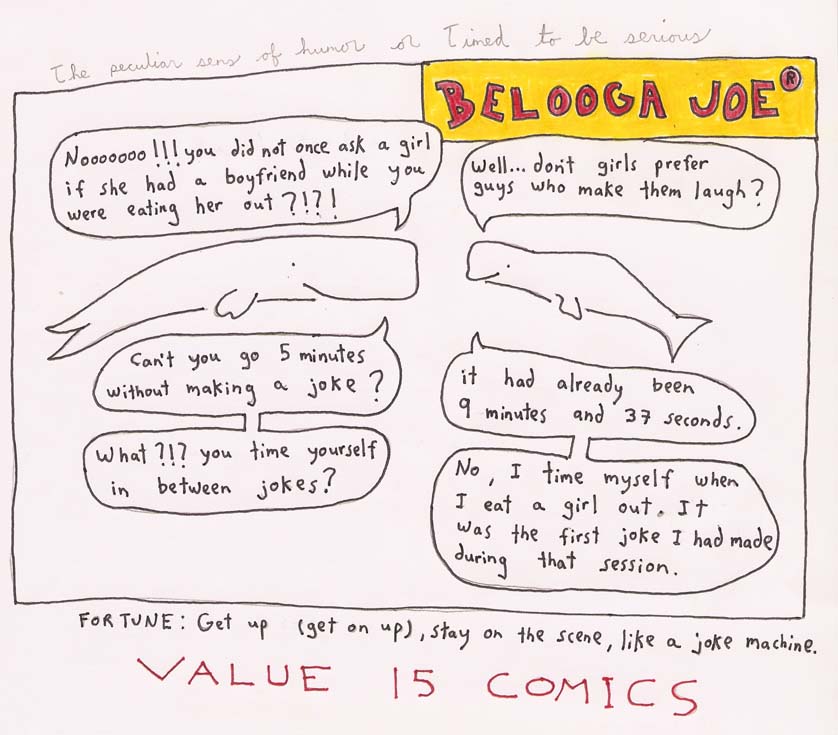 The peculiar sens of humor or Timed to be serious
BELOOGA JOE®
Nooooooo!!! you did not once ask a girl
if she had a boyfriend while you
were eating her out ?!?!
Well... don't girls prefer
guys who make them laugh?
Can't you go 5 minutes
without making a joke?
it had already been
9 minutes and 37 seconds.
What ?!? you time yourself
in between jokes?
No, I time myself when
I eat a girl out. It
was the first joke I had made
during that session.
FORTUNE: Get up (get on up), stay on the scene, like a joke machine.
VALUE 15 COMICS